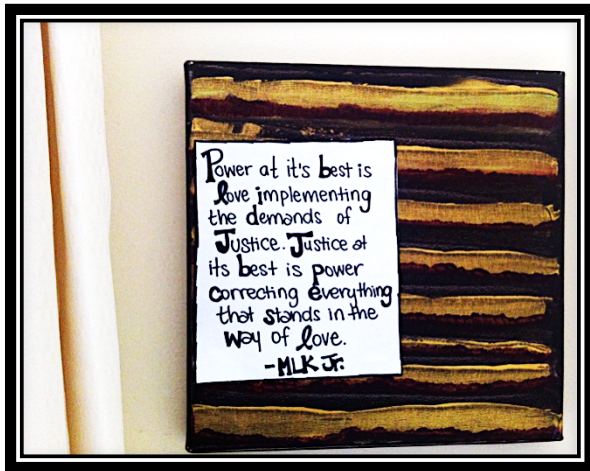 Power at it's best is
love implementing
the demands of
Justice. Justice at
its best is power
correcting everything
that stands in the
way of love.
-MLK Jr.